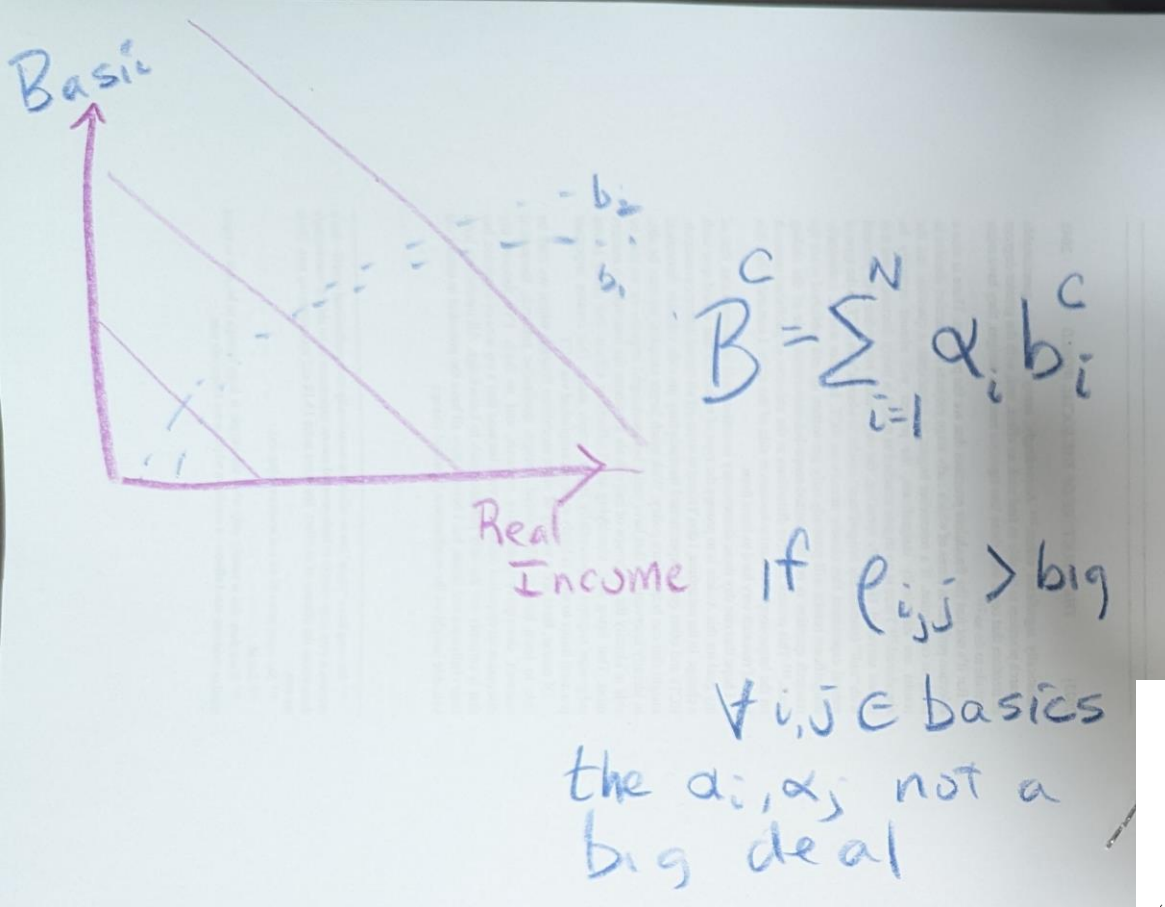 Basic
b₂
b₁
Real
Income
Bᶜ = Σᴺᵢ₌₁ αᵢ bᵢᶜ
If ρᵢ,ⱼ > big
∀ i,j ∈ basics
the αᵢ, αⱼ not a
big deal